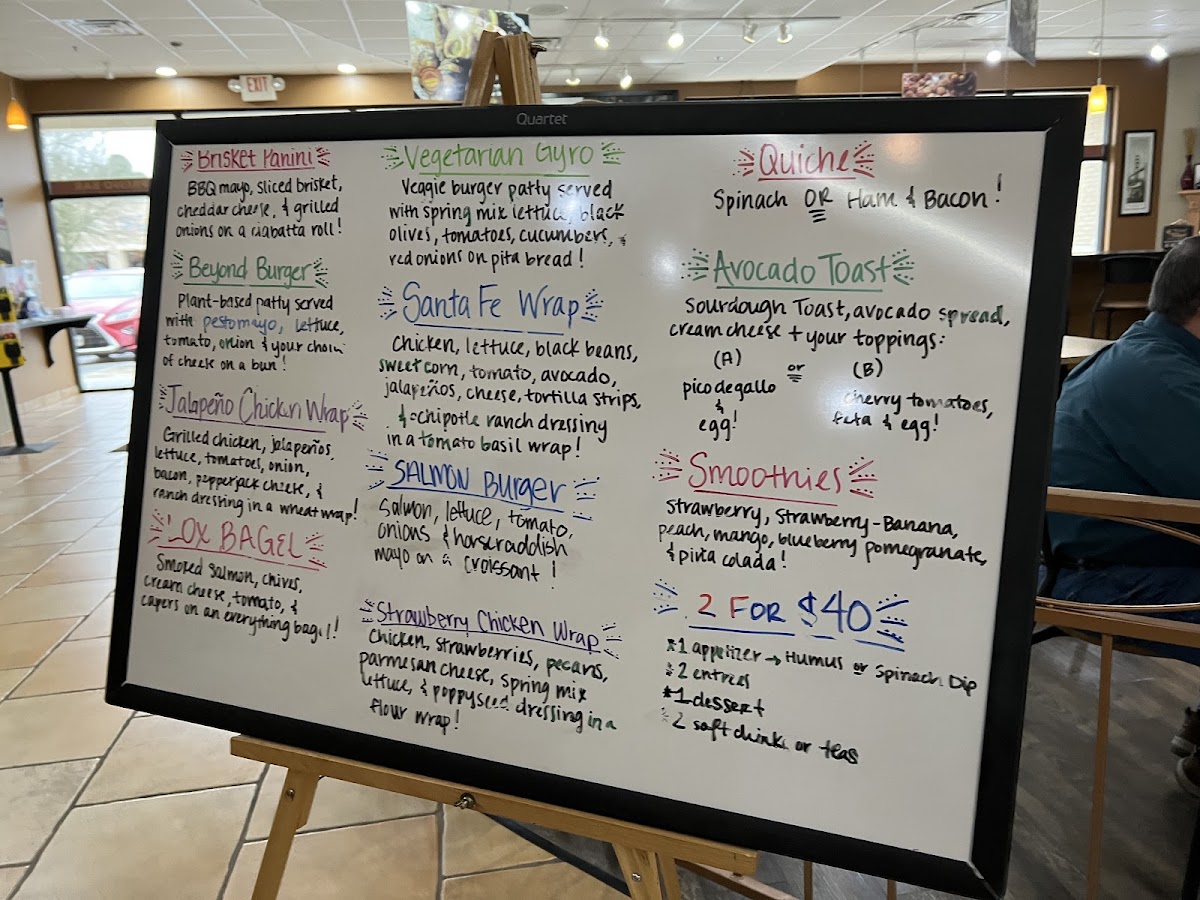 EXIT
Quartet
Brisket Panini
BBQ mayo, sliced brisket,
cheddar cheese, & grilled
onions on a ciabatta roll!
Beyond Burger
Plant-based patty served
with pestomayo, lettuce,
tomato, onion & your choice
of cheese on a bun!
Jalapeño Chicken Wrap
Grilled chicken, jalapeños,
lettuce, tomatoes, onion,
bacon, pepperjack cheese, &
ranch dressing in a wheat wrap!
LOX BAGEL
Smoked Salmon, chives,
cream cheese, tomato, &
capers on an everything bagel!
Vegetarian Gyro
Veggie burger patty served
with spring mix lettuce, black
olives, tomatoes, cucumbers, &
red onions on pita bread!
Santa Fe Wrap
Chicken, lettuce, black beans,
sweet corn, tomato, avocado,
jalapeños, cheese, tortilla strips,
& chipotle ranch dressing
in a tomato basil wrap!
SALMON Burger
Salmon, lettuce, tomato,
onions & horseraddish
mayo on a croissant!
Strawberry Chicken Wrap
Chicken, strawberries, pecans,
parmesan cheese, spring mix
lettuce, & poppyseed dressing in a
flour wrap!
Quiche
Spinach OR Ham & Bacon!
Avocado Toast
Sourdough Toast, avocado spread,
cream cheese + your toppings:
(A) or (B)
pico de gallo
&
egg!
cherry tomatoes,
feta & egg!
Smoothies
Strawberry, Strawberry-Banana,
peach, mango, blueberry pomegranate,
& pina colada!
2 FOR $40
*1 appetizer → Humus or Spinach Dip
*2 entrees
*1 dessert
*2 soft drinks or teas